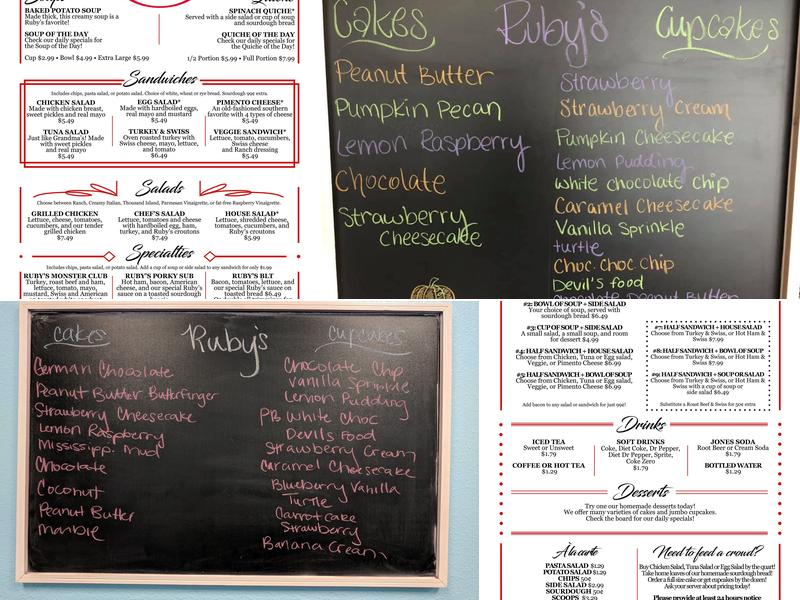 BAKED POTATO SOUP
Made thick, this creamy soup is a
Ruby's favorite!
SOUP OF THE DAY
Check our daily specials for
the Soup of the Day!
Cup $2.99 • Bowl $4.99 • Extra Large $5.99
SPINACH QUICHE*
Served with a side salad or cup of soup
and sourdough bread
QUICHE OF THE DAY
Check our daily specials for
the Quiche of the Day!
1/2 Portion $5.99 • Full Portion $7.99
Sandwiches
Includes chips, pasta salad, or potato salad. Choice of white, wheat or rye bread. Sourdough 99¢ extra.
CHICKEN SALAD
Made with chicken breast,
sweet pickles and real mayo
$5.49
EGG SALAD*
Made with hardboiled eggs,
real mayo and mustard
$5.49
PIMENTO CHEESE*
An old-fashioned southern
favorite with 4 types of cheese
$5.49
TUNA SALAD
Just like Grandma's! Made
with sweet pickles
and real mayo
$5.49
TURKEY & SWISS
Oven roasted turkey with
Swiss cheese, mayo, lettuce,
and tomato
$6.49
VEGGIE SANDWICH*
Lettuce, tomato, cucumbers,
Swiss cheese
and Ranch dressing
$5.49
Salads
Choose between Ranch, Creamy Italian, Thousand Island, Parmesan Vinaigrette, or fat-free Raspberry Vinaigrette.
GRILLED CHICKEN
Lettuce, cheese, tomatoes,
cucumbers, and our tender
grilled chicken
$7.49
CHEF'S SALAD
Lettuce, tomatoes and cheese
with hardboiled egg, ham,
turkey, and Ruby's croutons
$7.49
HOUSE SALAD*
Lettuce, shredded cheese,
tomatoes, cucumbers, and
Ruby's croutons
$5.99
Specialties
Includes chips, pasta salad, or potato salad. Add a cup of soup or side salad to any sandwich for only $1.99
RUBY'S MONSTER CLUB
Turkey, roast beef and ham,
lettuce, tomato, mayo,
mustard, Swiss and American
RUBY'S PORKY SUB
Hot ham, bacon, American
cheese, and our special Ruby's
sauce on a toasted sourdough
RUBY'S BLT
Bacon, tomatoes, lettuce, and
our special Ruby's sauce on
toasted bread $6.49
Cakes
Ruby's
Cupcakes
Peanut Butter
Pumpkin Pecan
Lemon Raspberry
Chocolate
Strawberry
Cheesecake
Strawberry
Strawberry Cream
Pumpkin Cheesecake
Lemon Pudding
White chocolate chip
Caramel Cheesecake
Vanilla Sprinkle
turtle
Choc. Choc Chip
Devil's food
Peanut Butter
Cakes
Ruby's
Cupcakes
German Chocolate
Peanut Butter Butterfinger
Strawberry Cheesecake
Lemon Raspberry
Mississippi Mud
Chocolate
Coconut
Peanut Butter
Marble
Chocolate Chip
Vanilla Sprinkle
Lemon Pudding
PB White Choc
Devils Food
Strawberry Cream
Caramel Cheesecake
Blueberry Vanilla
Turtle
Carrotcake
Strawberry
Banana Cream
#2: BOWL OF SOUP + SIDE SALAD
Your choice of soup, served with
sourdough bread $6.49
#3: CUP OF SOUP + SIDE SALAD
A small salad, a small soup, and room
for dessert $4.99
#4: HALF SANDWICH + SIDE SALAD
Choose from Chicken, Tuna or Egg salad,
Veggie, or Pimento Cheese $6.99
#5: HALF SANDWICH + BOWL OF SOUP
Choose from Chicken, Tuna or Egg salad,
Veggie, Pimento Cheese $6.99
Add bacon to any salad or sandwich for just 99¢!
#7: HALF SANDWICH + HOUSE SALAD
Choose from Turkey & Swiss, or Hot Ham &
Swiss $7.99
#8: HALF SANDWICH + BOWL OF SOUP
Choose from Turkey & Swiss, or Hot Ham &
Swiss $7.99
#9: HALF SANDWICH + SOUP OR SALAD
Choose from Turkey & Swiss, or Hot Ham &
Swiss with a cup of soup or
side salad $6.49
Substitute a Roast Beef & Swiss for 50¢ extra
Drinks
ICED TEA
Sweet or Unsweet
$1.79
COFFEE OR HOT TEA
$1.29
SOFT DRINKS
Coke, Diet Coke, Dr Pepper,
Diet Dr Pepper, Sprite,
Coke Zero
$1.79
JONES SODA
Root Beer or Cream Soda
$1.79
BOTTLED WATER
$1.29
Desserts
Try one our homemade desserts today!
We offer many varieties of cakes and jumbo cupcakes.
Check the board for our daily specials!
À la carte
PASTA SALAD $1.29
POTATO SALAD $1.29
CHIPS 50¢
SIDE SALAD $2.99
SOURDOUGH 50¢
SCOOPS $3.29
Need to feed a crowd?
Buy Chicken Salad, Tuna Salad or Egg Salad by the quart!
Take home loaves of our homemade sourdough bread!
Order a full size cake or get cupcakes by the dozen!
Ask your server about pricing today!
Please provide at least 24 hours notice